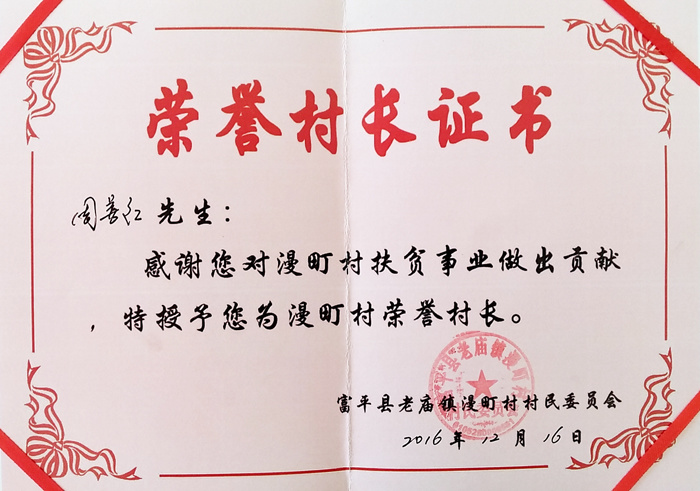 荣誉村长证书
周善红 先生：
感谢您对漫町村扶贫事业做出贡献
，特授予您为漫町村荣誉村长。
富平县老庙镇漫町村村民委员会
2016年12月16日